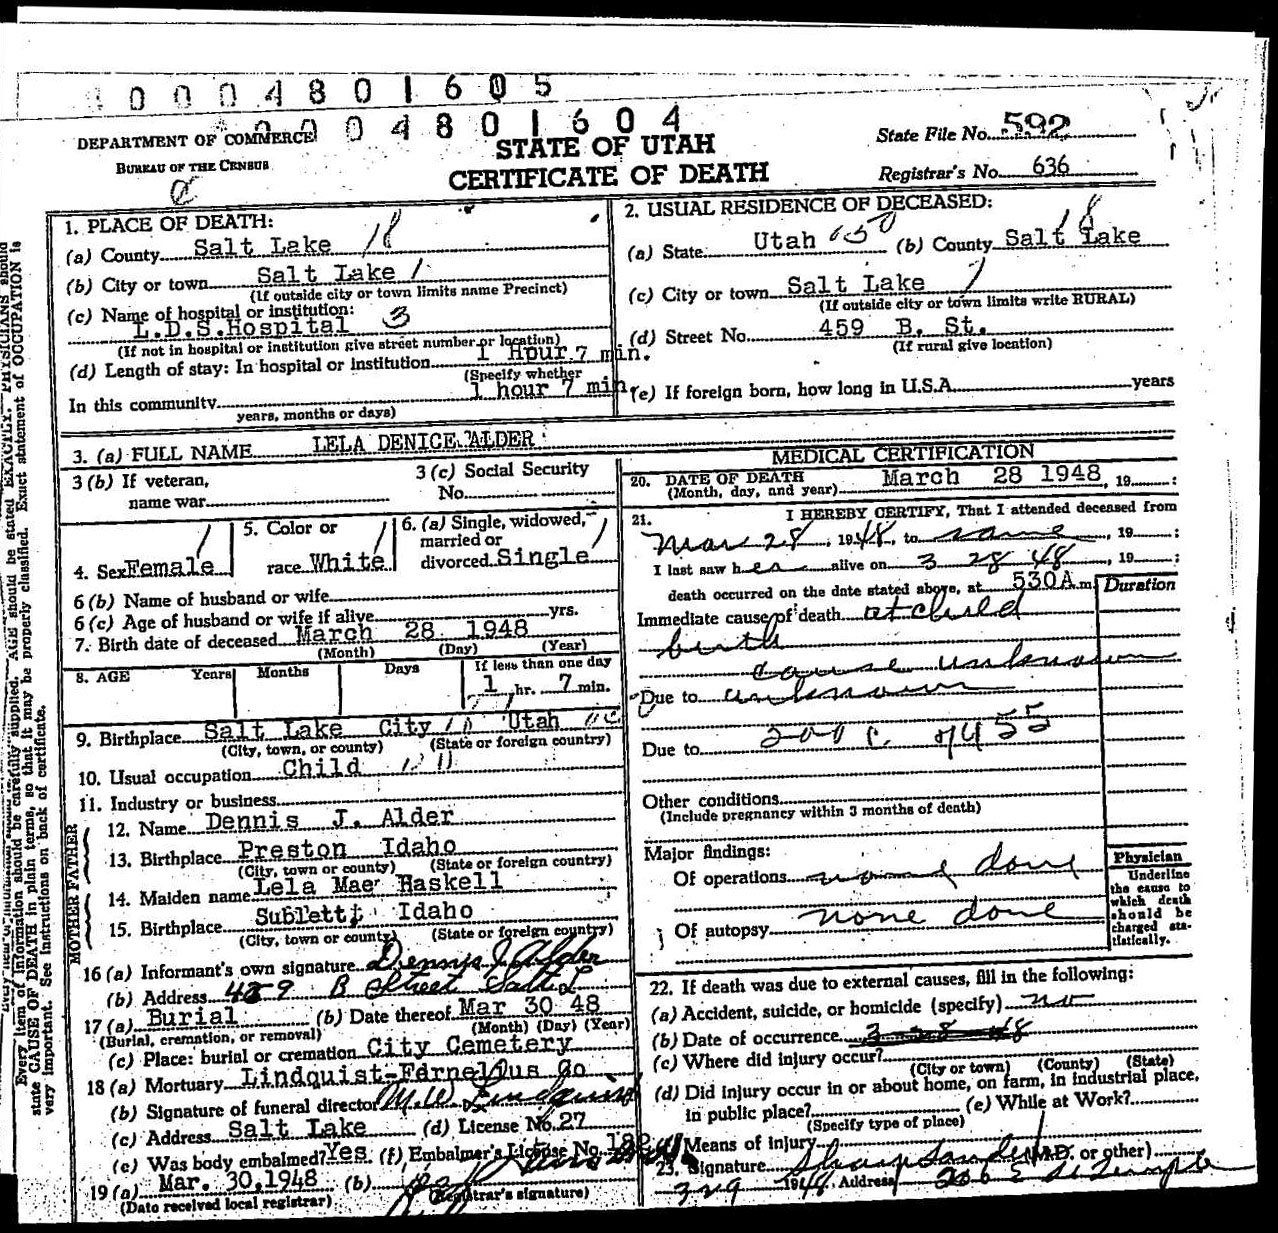 0004801605
0004801604
DEPARTMENT OF COMMERCE
BUREAU OF THE CENSUS
STATE OF UTAH
CERTIFICATE OF DEATH
State File No. 592
Registrar's No. 636
1. PLACE OF DEATH:
(a) County Salt Lake 18
(b) City or town Salt Lake 1
(If outside city or town limits name Precinct)
(c) Name of hospital or institution: 3
L.D.S. Hospital
(If not in hospital or institution give street number or location)
(d) Length of stay: In hospital or institution 1 Hour 7 min.
(Specify whether
In this community 1 hour 7 min.
years, months or days)
2. USUAL RESIDENCE OF DECEASED:
(a) State Utah 050 (b) County Salt Lake 18
(c) City or town Salt Lake 1
(If outside city or town limits write RURAL)
(d) Street No. 459 B. St.
(If rural give location)
(e) If foreign born, how long in U.S.A. years
3. (a) FULL NAME LELA DENICE ALDER
3 (b) If veteran,
name war
3 (c) Social Security
No.
4. Sex Female 1
5. Color or
race White 1
6. (a) Single, widowed,
married or
divorced Single 1
6 (b) Name of husband or wife
6 (c) Age of husband or wife if alive yrs.
7. Birth date of deceased March 28 1948
(Month) (Day) (Year)
8. AGE Years Months Days If less than one day
1 hr. 7 min.
9. Birthplace Salt Lake City Utah
(City, town, or county) (State or foreign country)
10. Usual occupation Child
11. Industry or business
FATHER
12. Name Dennis J. Alder
13. Birthplace Preston Idaho
(City, town, or county) (State or foreign country)
MOTHER
14. Maiden name Lela Mae Haskell
15. Birthplace Sublett Idaho
(City, town or county) (State or foreign country)
16 (a) Informant's own signature Dennis J. Alder
(b) Address 459 B Street Salt L
17 (a) Burial (b) Date thereof Mar 30 48
(Burial, cremation, or removal) (Month) (Day) (Year)
(c) Place: burial or cremation City Cemetery
18 (a) Mortuary Lindquist-Fernelius Co
(b) Signature of funeral director M.W. Lindquist
(c) Address Salt Lake (d) License No. 27
(e) Was body embalmed? Yes (f) Embalmer's License No.
19 (a) Mar. 30, 1948 (b)
(Date received local registrar) (Registrar's signature)
MEDICAL CERTIFICATION
20. DATE OF DEATH
(Month, day, and year) March 28 1948, 19 :
21. I HEREBY CERTIFY, That I attended deceased from
Mar 28, 1948, to same, 19 :
I last saw her alive on 3 28 48, 19 :
death occurred on the date stated above, at 530A m. Duration
Immediate cause of death at child
birth
cause unknown
Due to unknown
Due to 200 C.
Other conditions
(Include pregnancy within 3 months of death)
Major findings:
Of operations none done
Of autopsy none done
Physician
Underline
the cause to
which death
should be
charged sta-
tistically.
22. If death was due to external causes, fill in the following:
(a) Accident, suicide, or homicide (specify) no
(b) Date of occurrence 3 28 48
(c) Where did injury occur?
(City or town) (County) (State)
(d) Did injury occur in or about home, on farm, in industrial place,
in public place? (e) While at Work?
(Specify type of place)
Means of injury
23. Signature (M.D. or other)
1948 Address 206 E So Temple
Every item of information should be carefully supplied. AGE should be stated EXACTLY. PHYSICIANS should
state CAUSE OF DEATH in plain terms, so that it may be properly classified. Exact statement of OCCUPATION is
very important. See instructions on back of certificate.